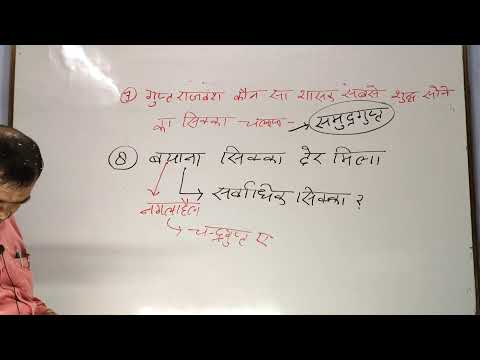 ⑦ गुप्त राजवंश कौन सा शासक सबसे शुद्ध सोने
का सिक्का चलाया → समुद्रगुप्त
⑧ बयाना सिक्का ढेर मिला
→ सर्वाधिक सिक्का ?
→ चन्द्रगुप्त